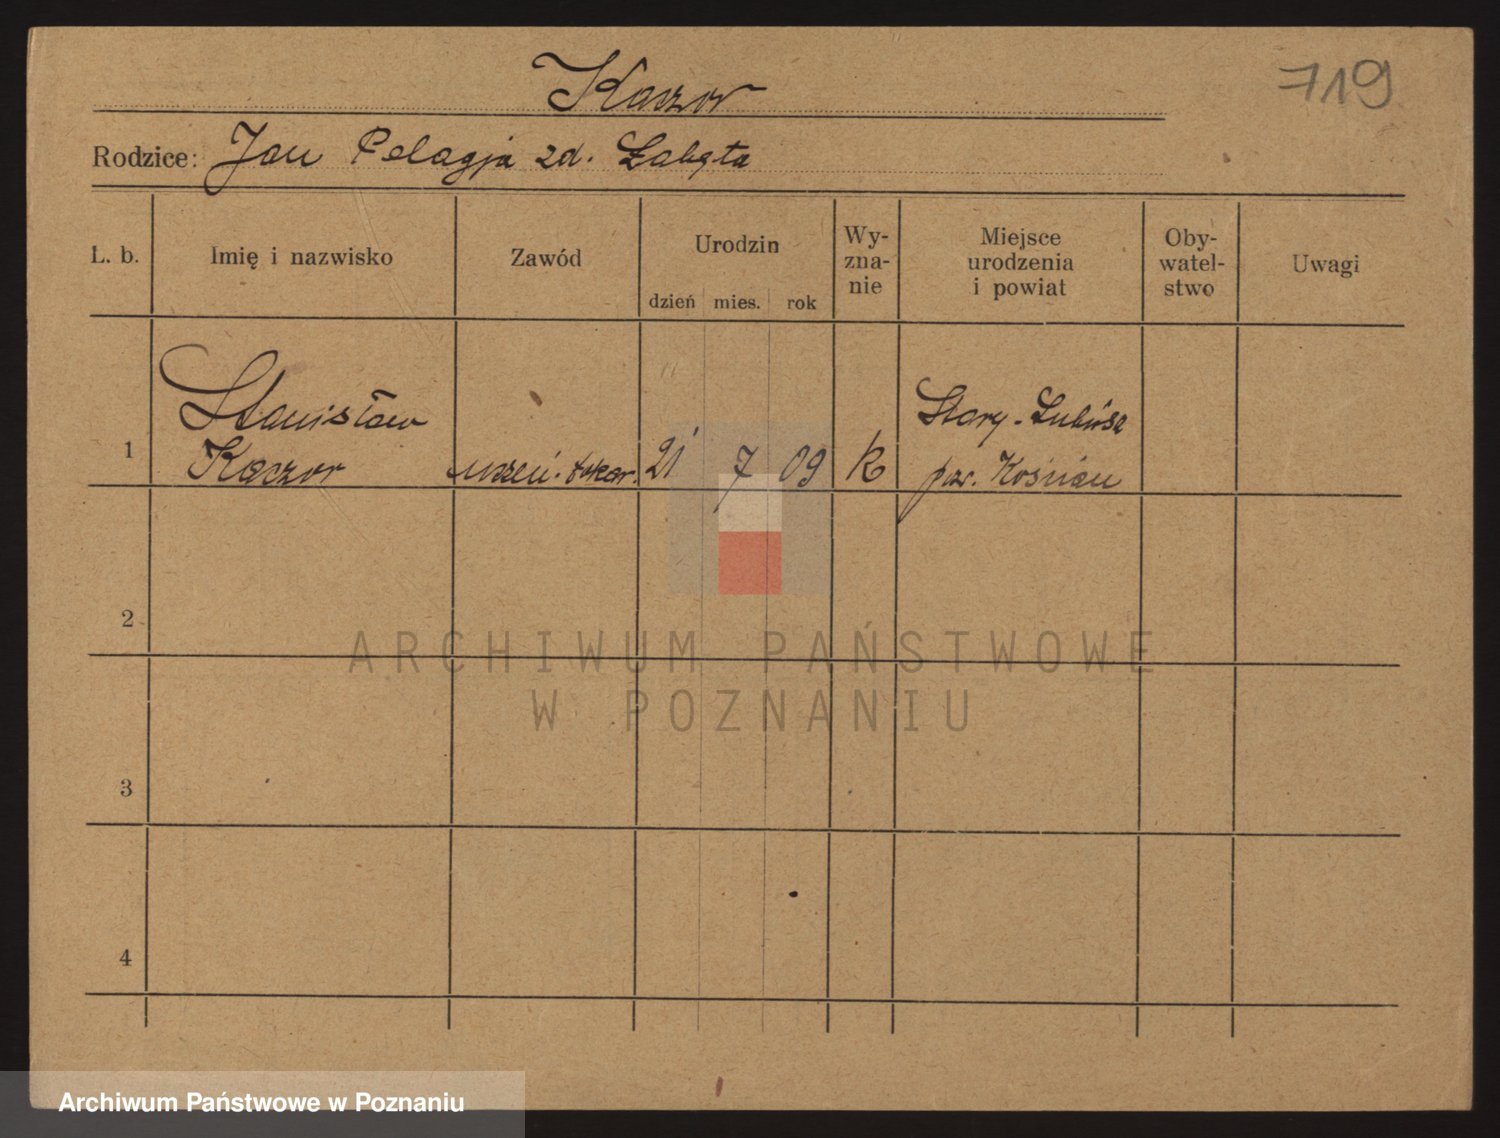 Kaczor
719
Rodzice: Jan Pelagja zd.
L. b.
Imię i nazwisko
Zawód
Urodzin
dzień mies. rok
Wy-
zna-
nie
Miejsce
urodzenia
i powiat
Oby-
watel-
stwo
Uwagi
1
Stanisław
Kaczor
uczeń. tokar.
21 7 09
k
Stary-
pow. Kościan
2
3
4
ARCHIWUM PAŃSTWOWE
W POZNANIU
Archiwum Państwowe w Poznaniu